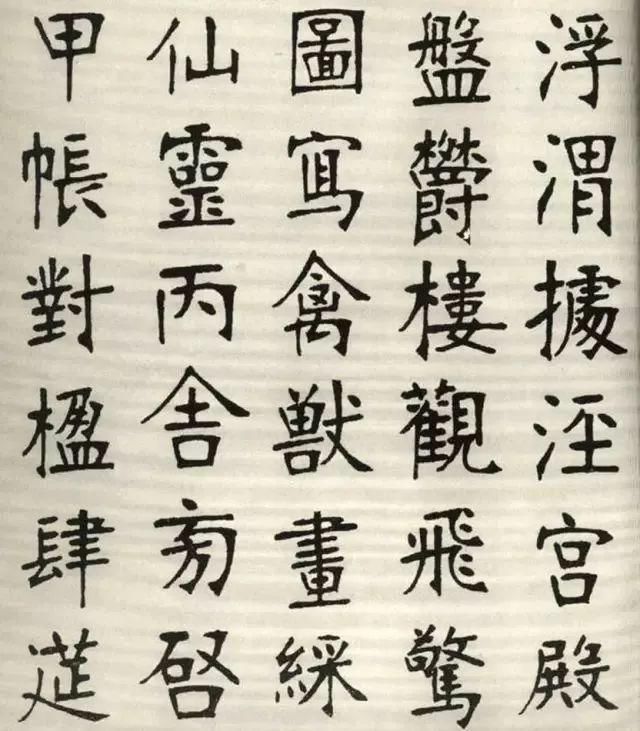 浮渭據涇宫殿
盤欝樓觀飛驚
圖寫禽獸畫綵
仙靈丙舎旁啓
甲帳對楹肆筵